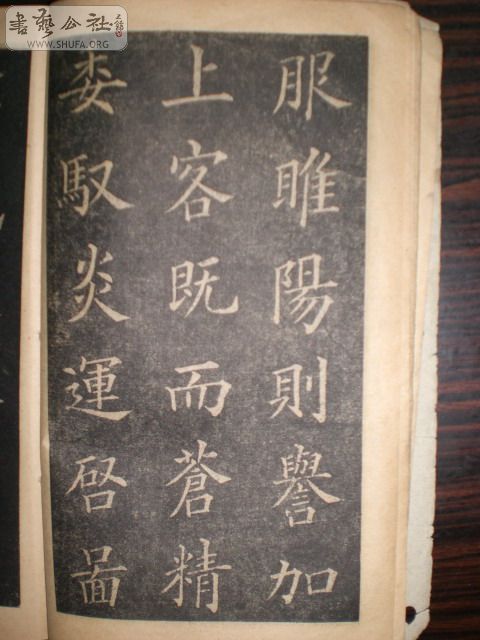 服睢陽則譽加
上客既而蒼精
委馭炎運啓啚
書藝公社
WWW.SHUFA.ORG